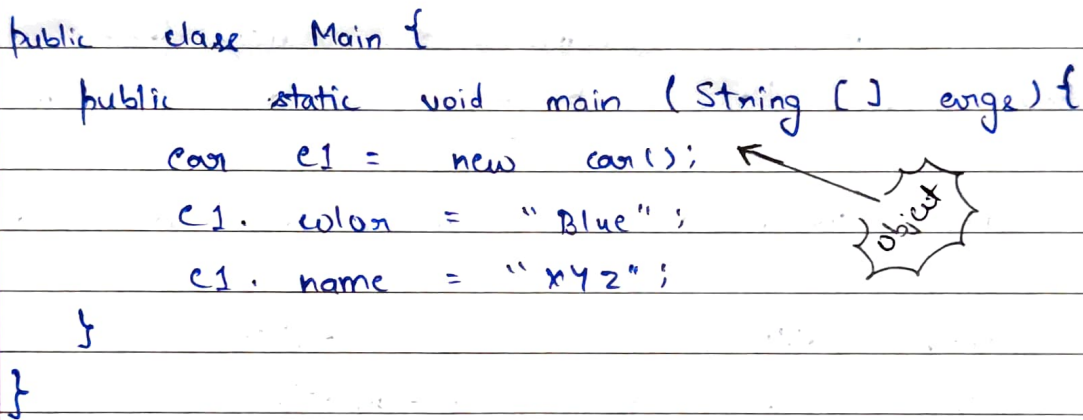 public class Main {
public static void main ( String [ ] args ) {
Car c1 = new car ( ) ;
object
c1 . color = " Blue " ;
c1 . name = " XYZ " ;
}
}